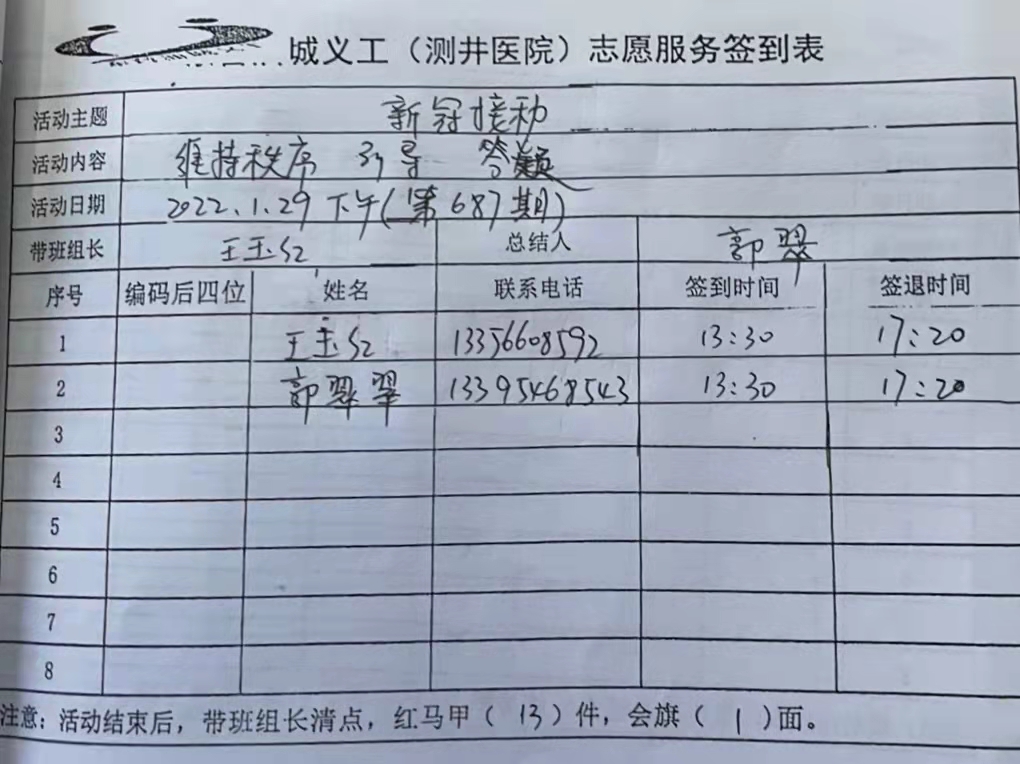 城义工（测井医院）志愿服务签到表
活动主题 新冠接种
活动内容 维持秩序 引导 答疑
活动日期 2022.1.29下午(第687期)
带班组长 王玉红 总结人 郭翠
序号 编码后四位 姓名 联系电话 签到时间 签退时间
1 王玉红 13356608592 13:30 17:20
2 郭翠翠 13395468543 13:30 17:20
3
4
5
6
7
8
注意：活动结束后，带班组长清点，红马甲（13）件，会旗（1）面。